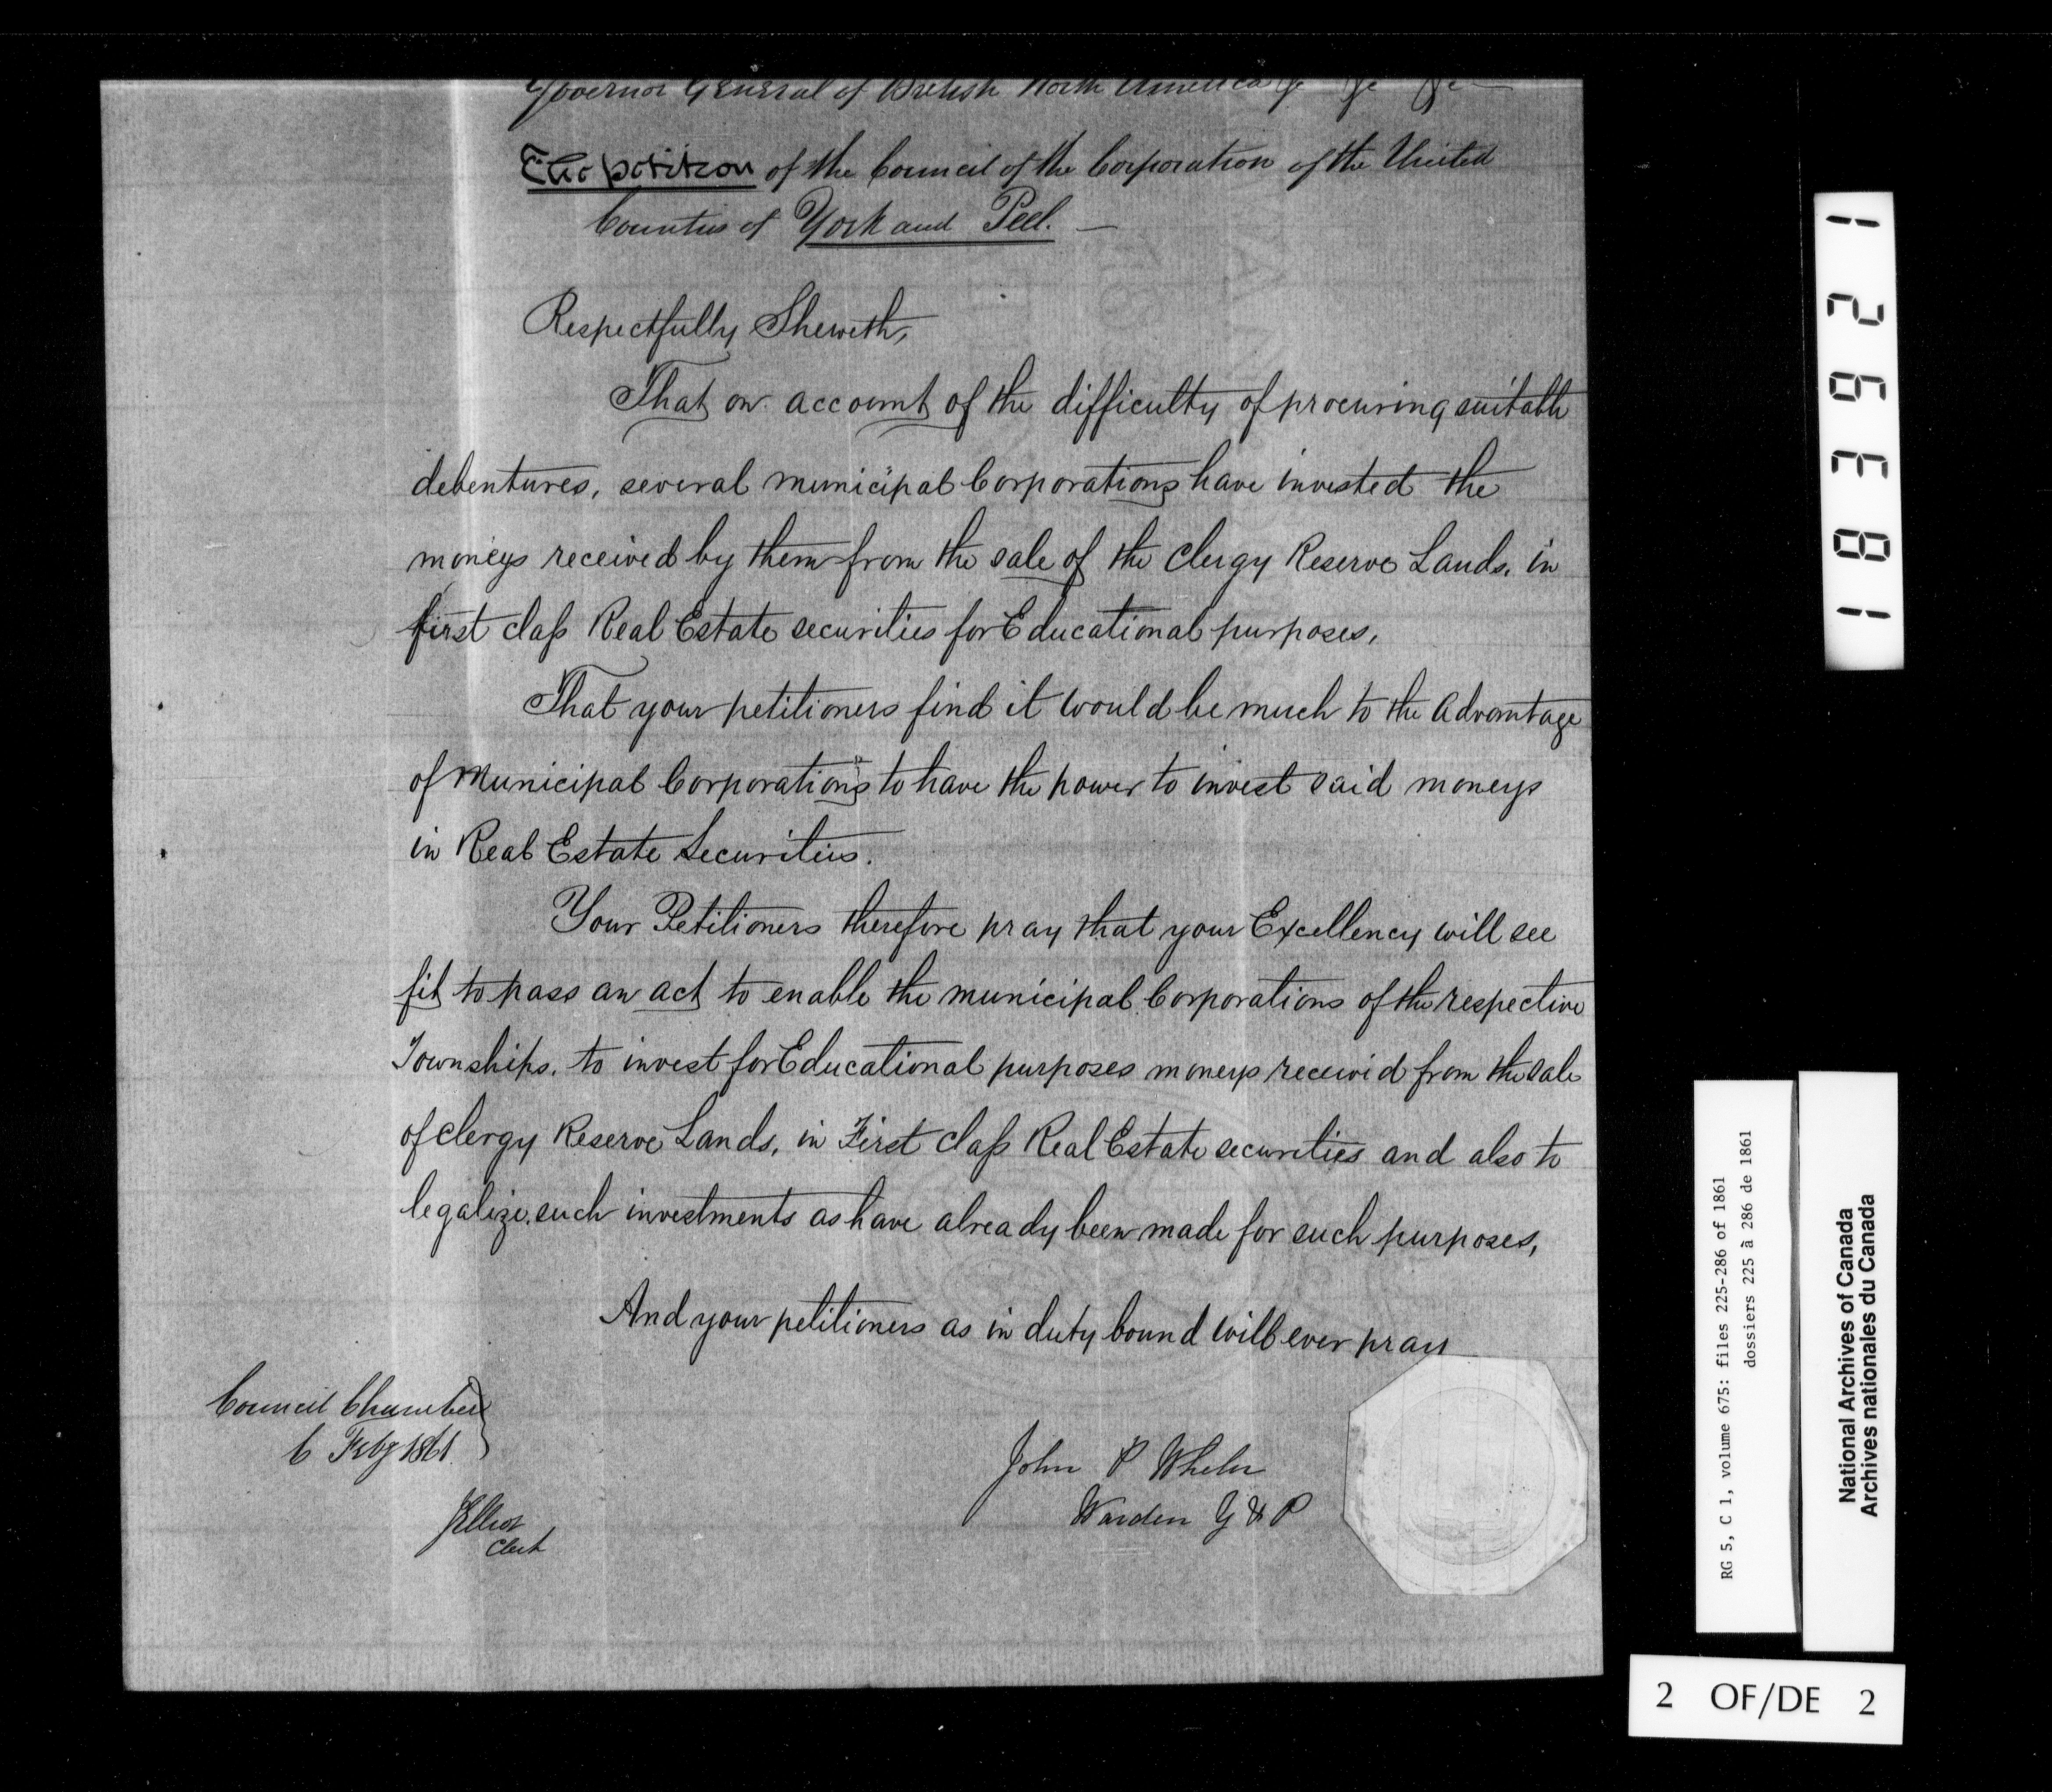 Governor General of British North America &c &c &c
The petition of the Council of the Corporation of the United
Counties of York and Peel. —
Respectfully Sheweth,
That on account of the difficulty of procuring suitable
debentures, several municipal Corporations have invested the
moneys received by them from the sale of the Clergy Reserve Lands, in
first class Real Estate securities for Educational purposes,
That your petitioners find it would be much to the advantage
of Municipal Corporations to have the power to invest said moneys
in Real Estate Securities.
Your Petitioners therefore pray that your Excellency will see
fit to pass an act to enable the municipal Corporations of the respective
Townships, to invest for Educational purposes moneys received from the sale
of Clergy Reserve Lands, in First class Real Estate securities and also to
legalize such investments as have already been made for such purposes,
And your petitioners as in duty bound will ever pray
Council Chamber
6 Feby 1861
John P Wheler
Warden Y & P
J Elliot
Clerk
181396 21
RG 5, C 1, volume 675: files 225-286 of 1861
dossiers 225 à 286 de 1861
National Archives of Canada
Archives nationales du Canada
2 OF/DE 2